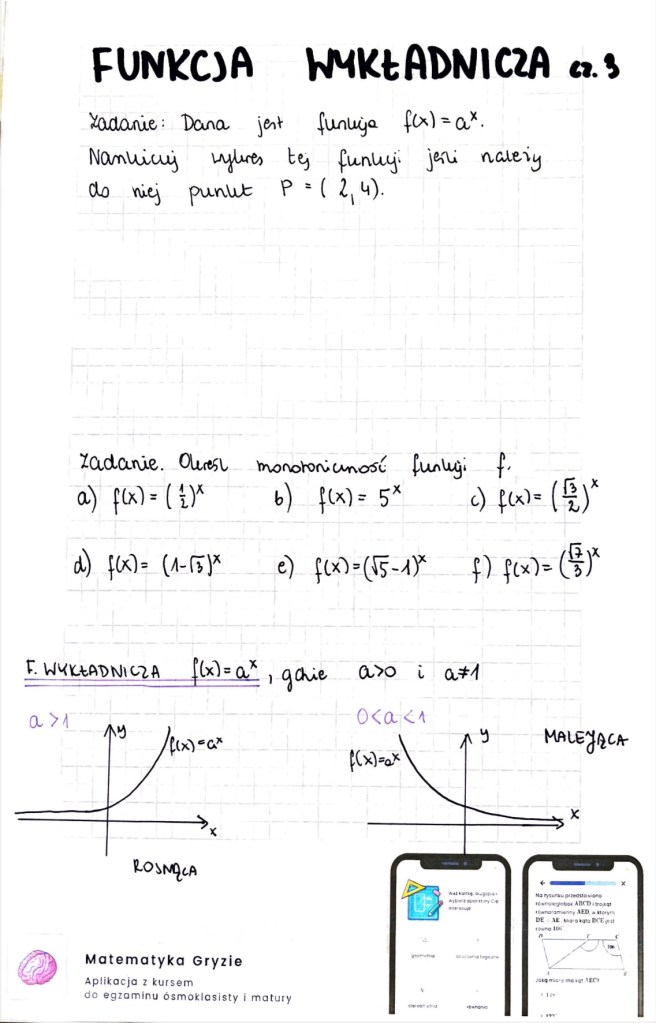 FUNKCJA WYKŁADNICZA cz. 3
Zadanie: Dana jest funkcja f(x) = aˣ.
Naszkicuj wykres tej funkcji jeśli należy
do niej punkt P = ( 2, 4).
Zadanie. Określ monotoniczność funkcji f.
a) f(x) = (1/2)ˣ b) f(x) = 5ˣ c) f(x) = (√3/2)ˣ
d) f(x) = (1-√3)ˣ e) f(x) = (√5-1)ˣ f) f(x) = (√7/3)ˣ
F. WYKŁADNICZA f(x) = aˣ, gdzie a>0 i a≠1
a >1
y
f(x) = aˣ
x
ROSNĄCA
0<a<1
y
MALEJĄCA
f(x)=aˣ
x
Matematyka Gryzie
Aplikacja z kursem
do egzaminu ósmoklasisty i matury
Na rysunku przedstawiono
równoległobok ABCD i trójkąt
równoramienny AED, w którym
DE = AE. Miara kąta DCE jest
równa